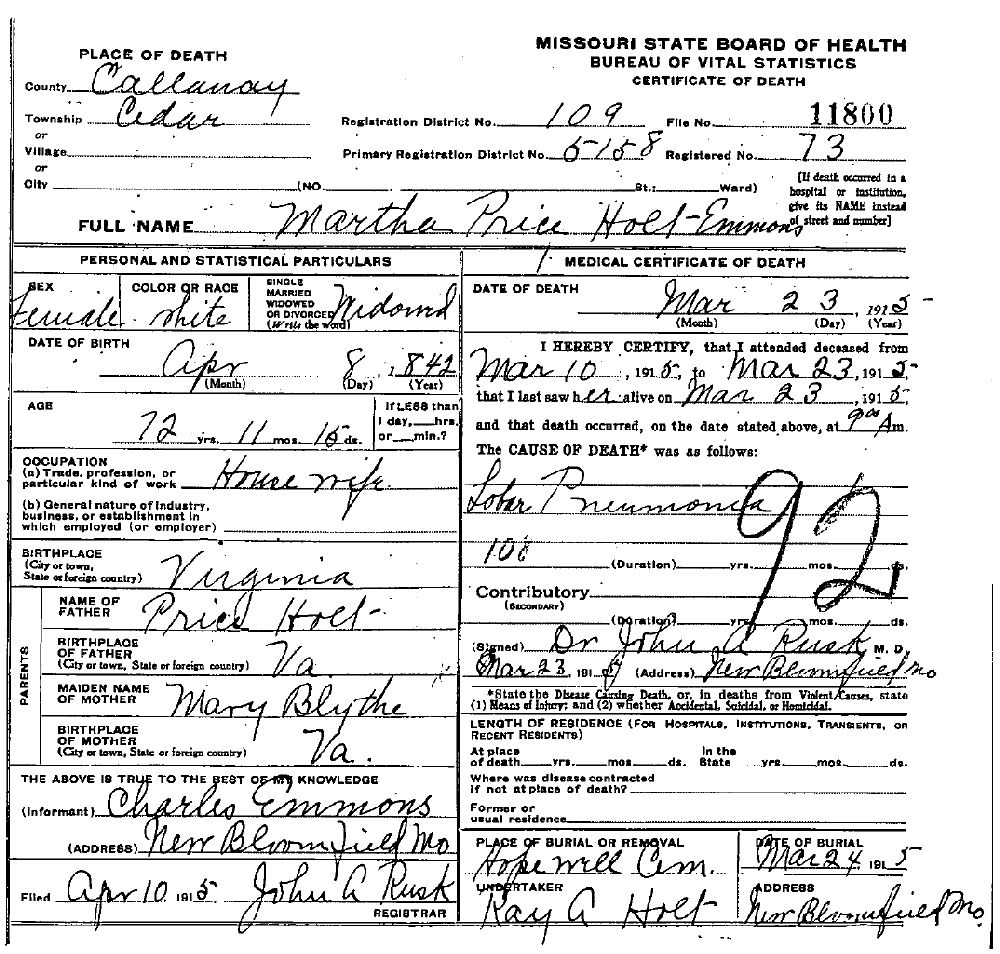 MISSOURI STATE BOARD OF HEALTH
BUREAU OF VITAL STATISTICS
CERTIFICATE OF DEATH
PLACE OF DEATH
County Callaway
Township Cedar
or
Village
or
City (NO. St.; Ward)
Registration District No. 109 File No. 11800
Primary Registration District No. 5158 Registered No. 73
[If death occurred in a
hospital or institution,
give its NAME instead
of street and number]
FULL NAME Martha Price Holt-Emmons
PERSONAL AND STATISTICAL PARTICULARS
SEX Female
COLOR OR RACE White
SINGLE
MARRIED
WIDOWED
OR DIVORCED
(Write the word) Widowed
DATE OF BIRTH
Apr 8, 1842
(Month) (Day) (Year)
AGE
72 yrs. 11 mos. 15 ds.
If LESS than
1 day, hrs.
or min.?
OCCUPATION
(a) Trade, profession, or
particular kind of work House wife
(b) General nature of industry,
business, or establishment in
which employed (or employer)
BIRTHPLACE
(City or town,
State or foreign country) Virginia
PARENTS
NAME OF
FATHER Price Holt
BIRTHPLACE
OF FATHER
(City or town, State or foreign country) Va
MAIDEN NAME
OF MOTHER Mary Blythe
BIRTHPLACE
OF MOTHER
(City or town, State or foreign country) Va.
THE ABOVE IS TRUE TO THE BEST OF MY KNOWLEDGE
(Informant) Charles Emmons
(ADDRESS) New Bloomfield Mo
Filed Apr 10 1915 John A Rusk
REGISTRAR
MEDICAL CERTIFICATE OF DEATH
DATE OF DEATH
Mar 23, 1915
(Month) (Day) (Year)
I HEREBY CERTIFY, that I attended deceased from
Mar 10, 1915, to Mar 23, 1915
that I last saw her alive on Mar 23, 1915,
and that death occurred, on the date stated above, at 9 00 Am.
The CAUSE OF DEATH* was as follows:
Lobar Pneumonia
92
108
(Duration) yrs. mos. ds.
Contributory
(SECONDARY)
(Duration) yrs. mos. ds.
(Signed) Dr John A Rusk, M. D.
Mar 23 1915 (Address) New Bloomfield Mo
*State the Disease Causing Death, or, in deaths from Violent Causes, state
(1) Means of Injury; and (2) whether Accidental, Suicidal, or Homicidal.
LENGTH OF RESIDENCE (FOR HOSPITALS, INSTITUTIONS, TRANSIENTS, OR
RECENT RESIDENTS)
At place In the
of death yrs. mos. ds. State yrs. mos. ds.
Where was disease contracted
if not at place of death?
Former or
usual residence
PLACE OF BURIAL OR REMOVAL
Hopewell Cem.
DATE OF BURIAL
Mar 24 1915
UNDERTAKER
Ray A Holt
ADDRESS
New Bloomfield Mo.